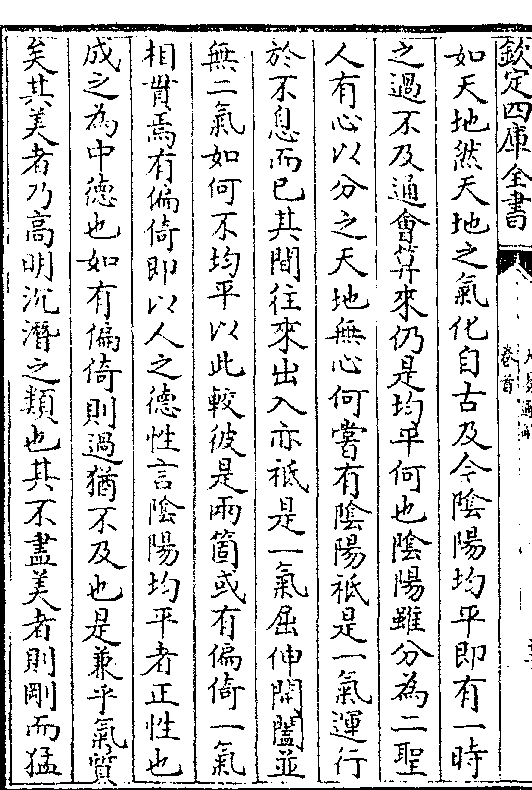 欽定四庫全書
卷首
如天地然天地之氣化自古及今陰陽均平即有一時
之過不及通會算來仍是均平何也陰陽雖分為二聖
人有心以分之天地無心何嘗有陰陽祗是一氣運行
於不息而已其間往來出入亦祗是一氣屈伸開闔並
無二氣如何不均平以此較彼是兩箇或有偏倚一氣
相貫焉有偏倚即以人之德性言陰陽均平者正性也
成之為中德也如有偏倚則過猶不及也是兼乎氣質
矣其美者乃高明沉潛之類也其不盡美者則剛而猛